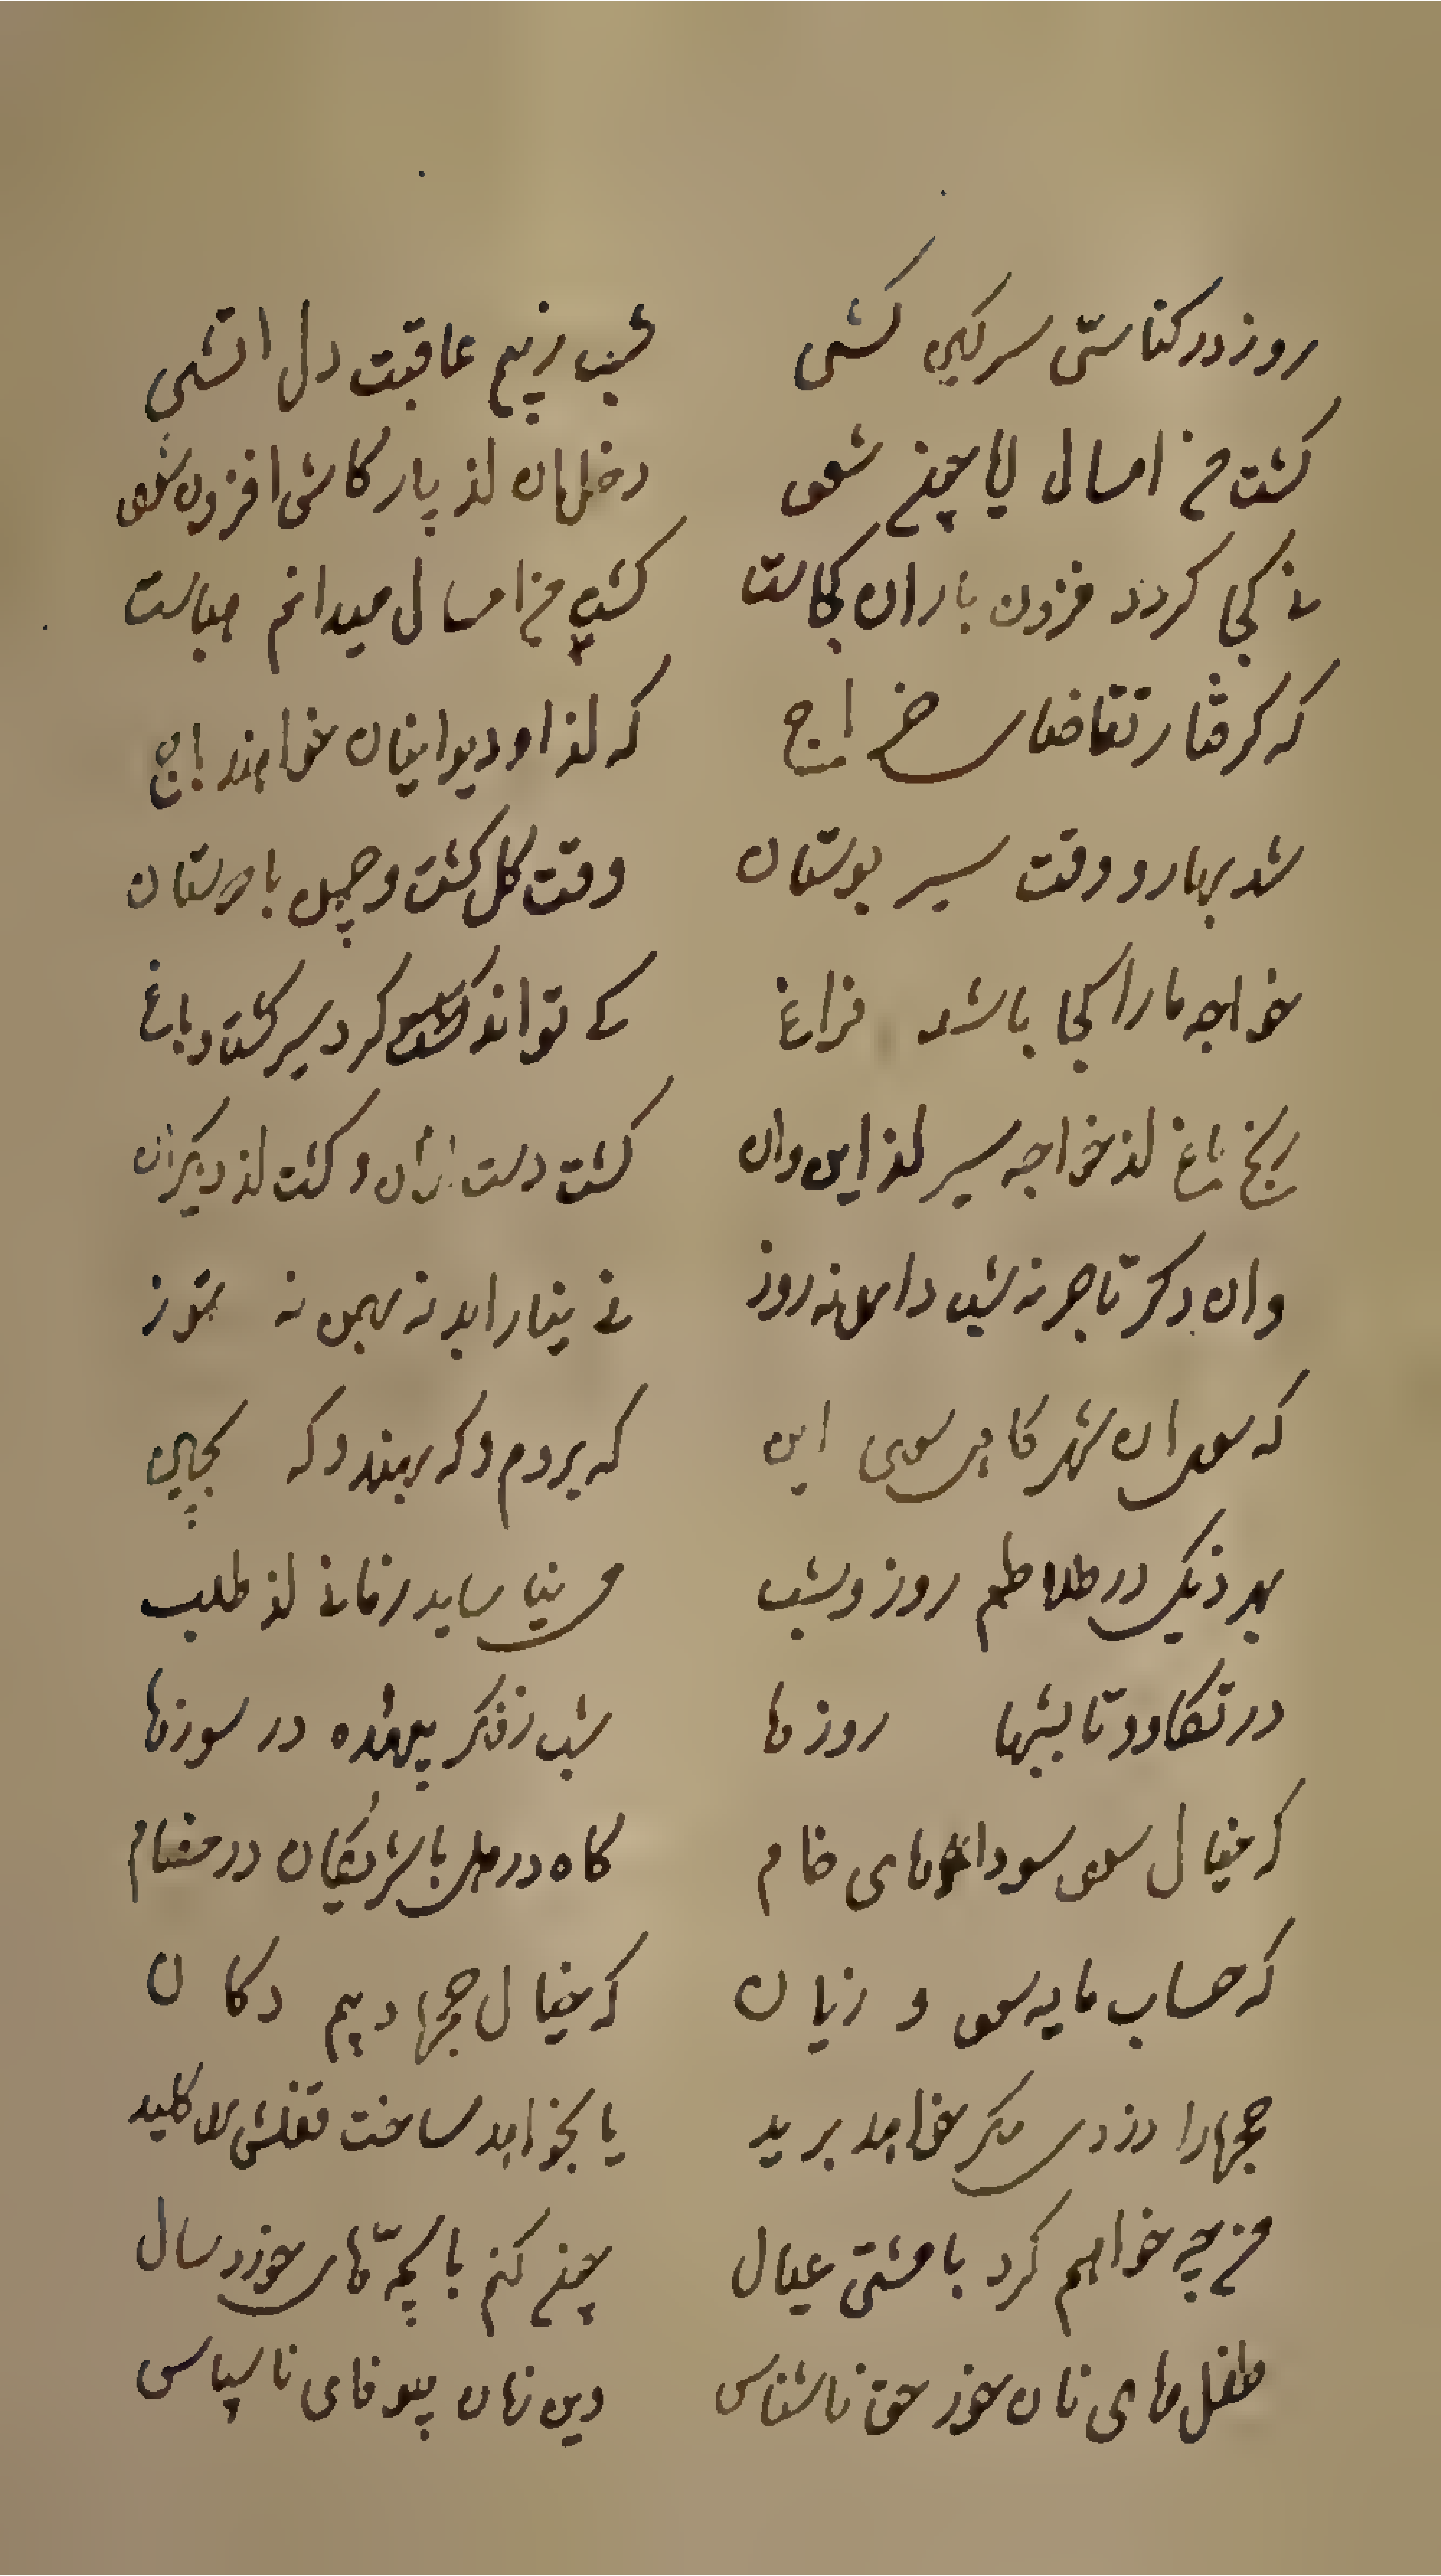 روز در کناستی سرکین کشی شب ز بیم عاقبت دل اتشی
کشت من امسال ایا چون شود دخلمان از پار کاش افزون شود
نه کجا کردد فزون باران کجاست کشت من امسال میدانم هباست
که کرفتار تقاضای خراج که از او دیوانیان خواهند باج
شد بهار و وقت سیر بوستان وقت کل کشت و چمن با دوستان
خواجه ما را کجا باشد فراغ کے تواند کرد سیر کشت و باغ
رنج باغ از خواجه سیر از این وان کشت دست ایشان و کشت از دیکران
وان دکر تاجر نه شب داند نه روز نے بنیارامد نه بهمن نه تموز
که سوی ان شهر کاهی سوی این که بروم و که بهند و که بچین
بهر دنیک در طلاطم روز و شب می نیاساید زمانے از طلب
در تکاو و تا بشبها روز ها شب ز فکر بیهده در سوزها
که خیال سود سوداهای خام کاه در دل با شریکان در خصام
که حساب مایه سود و زیان که خیال حجرها و بیم دکان
حجرها را دزدی مکر خواهد برید یا بخواهد ساخت قفلش را کلید
من چه خواهم کرد با مشتی عیال چون کنم با بچّه های خورد سال
طفل های نان خور حق ناشناس وین زنان بیوفای ناسپاس